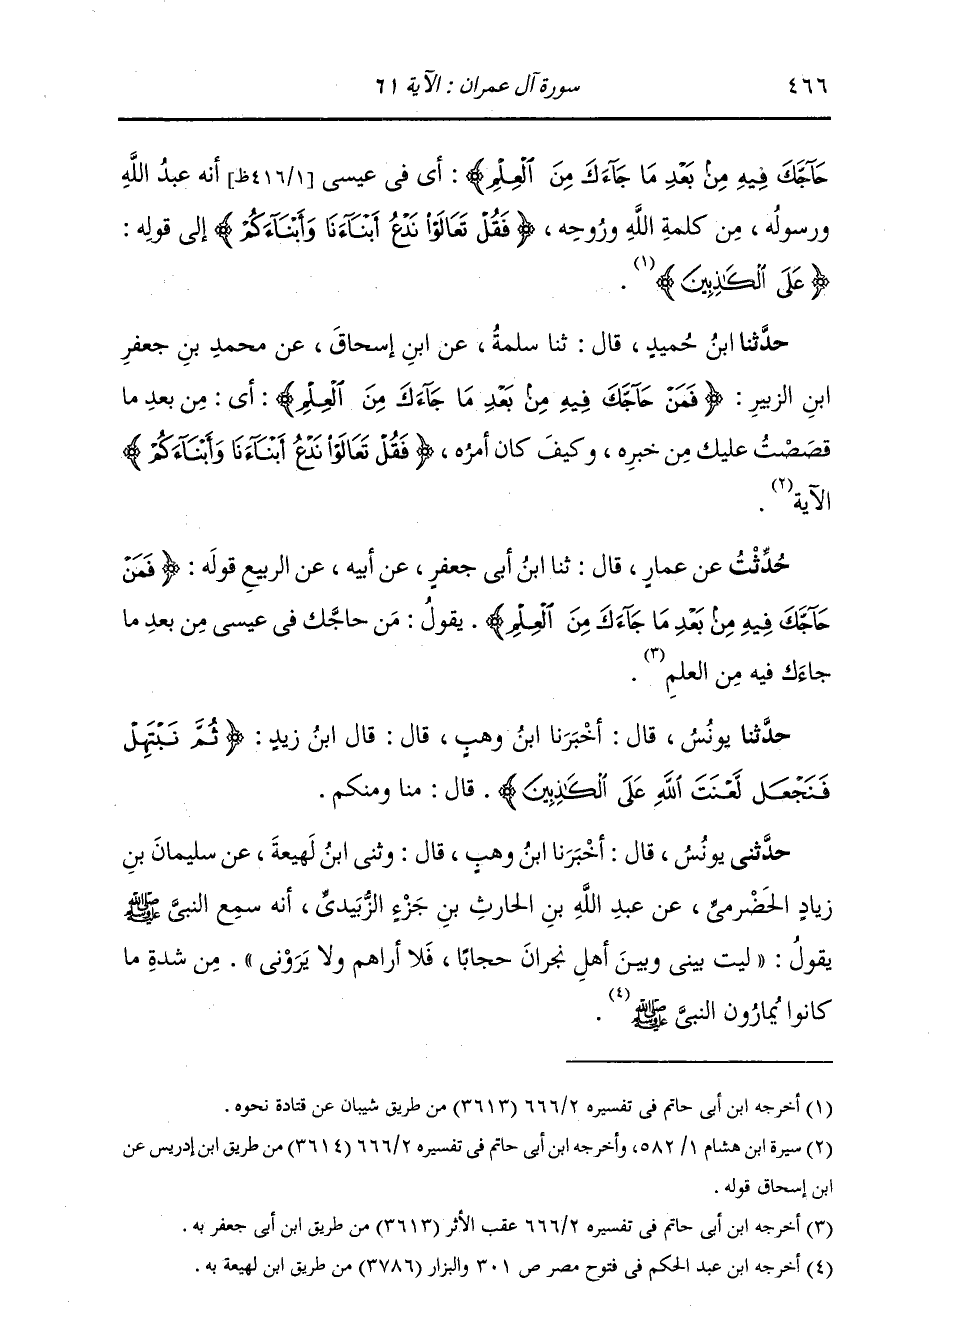 ٤٦٦ سورة آل عمران : الآية ٦١
حَآجَّكَ فِيهِ مِنۢ بَعْدِ مَا جَآءَكَ مِنَ ٱلْعِلْمِ﴾ : أى فى عيسى [٤١٦/١ظ] أنه عبدُ اللَّهِ
ورسولُه ، مِن كلمةِ اللَّهِ ورُوحِه ، ﴿فَقُلْ تَعَالَوْا۟ نَدْعُ أَبْنَآءَنَا وَأَبْنَآءَكُمْ﴾ إلى قولِه :
﴿عَلَى ٱلْكَـٰذِبِينَ﴾(١) .
حدَّثنا ابنُ حُميدٍ ، قال : ثنا سلمةُ ، عن ابنِ إسحاقَ ، عن محمدِ بنِ جعفرِ
ابنِ الزبيرِ : ﴿فَمَنْ حَآجَّكَ فِيهِ مِنۢ بَعْدِ مَا جَآءَكَ مِنَ ٱلْعِلْمِ﴾ : أى : مِن بعدِ ما
قصَصْتُ عليك مِن خبرِه ، وكيفَ كان أمرُه ، ﴿فَقُلْ تَعَالَوْا۟ نَدْعُ أَبْنَآءَنَا وَأَبْنَآءَكُمْ﴾
الآية(٢) .
حُدِّثْتُ عن عمارٍ ، قال : ثنا ابنُ أبى جعفرٍ ، عن أبيه ، عن الربيعِ قولَه : ﴿فَمَنْ
حَآجَّكَ فِيهِ مِنۢ بَعْدِ مَا جَآءَكَ مِنَ ٱلْعِلْمِ﴾ . يقولُ : مَن حاجَّك فى عيسى مِن بعدِ ما
جاءَك فيه مِن العلمِ(٣) .
حدَّثنا يونُسُ ، قال : أخْبَرَنا ابنُ وهبٍ ، قال : قال ابنُ زيدٍ : ﴿ثُمَّ نَبْتَهِلْ
فَنَجْعَل لَّعْنَتَ ٱللَّهِ عَلَى ٱلْكَـٰذِبِينَ﴾ . قال : منا ومنكم .
حدَّثنى يونُسُ ، قال : أخْبَرَنا ابنُ وهبٍ ، قال : وثنى ابنُ لَهيعةَ ، عن سليمانَ بنِ
زيادٍ الحَضْرميِّ ، عن عبدِ اللَّهِ بنِ الحارثِ بنِ جَزْءٍ الزُّبَيدىِّ ، أنه سمِع النبىَّ ﷺ
يقولُ : « ليت بينى وبينَ أهلِ نجرانَ حجابًا ، فَلا أراهم ولا يَرَوْنى » . مِن شدةِ ما
كانوا يُمارُون النبىَّ ﷺ(٤) .
(١) أخرجه ابن أبى حاتم فى تفسيره ٦٦٦/٢ (٣٦١٣) من طريق شيبان عن قتادة نحوه .
(٢) سيرة ابن هشام ١/ ٥٨٢، وأخرجه ابن أبى حاتم فى تفسيره ٦٦٦/٢ (٣٦١٤) من طريق ابن إدريس عن
ابن إسحاق قوله .
(٣) أخرجه ابن أبى حاتم فى تفسيره ٦٦٦/٢ عقب الأثر (٣٦١٣) من طريق ابن أبى جعفر به .
(٤) أخرجه ابن عبد الحكم فى فتوح مصر ص ٣٠١ والبزار (٣٧٨٦) من طريق ابن لهيعة به .